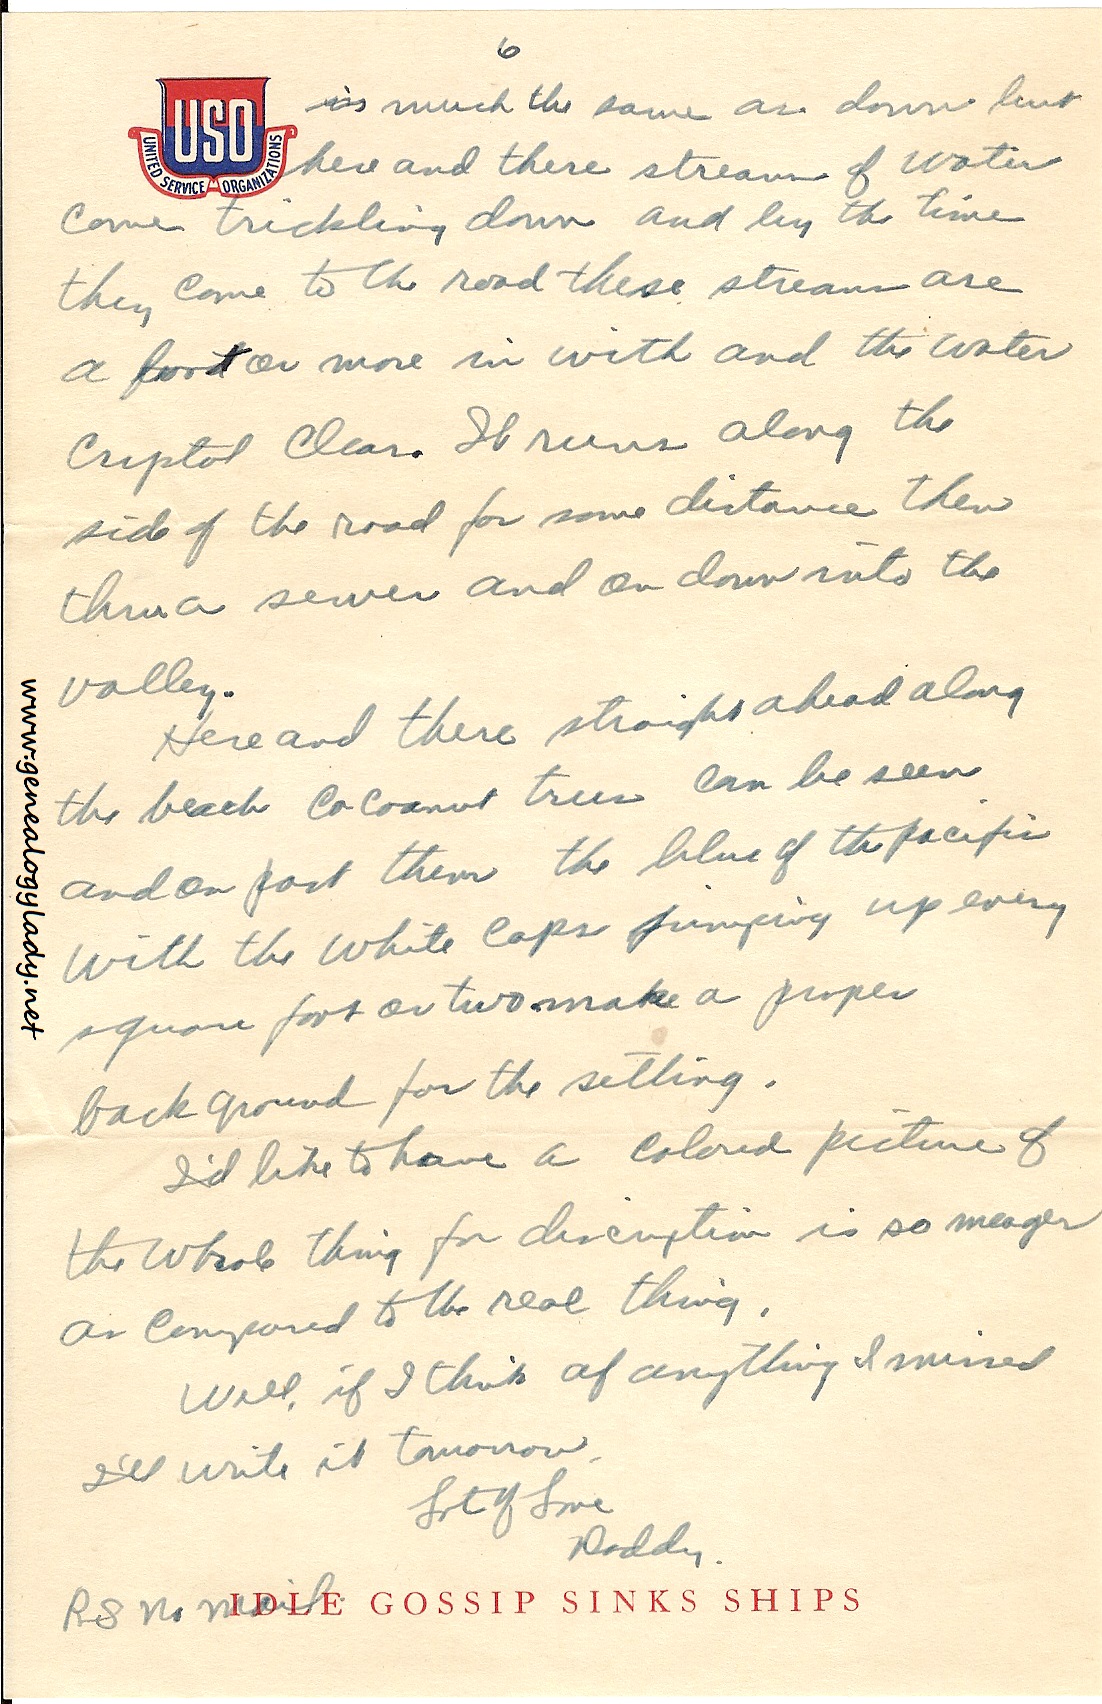 6
USO
UNITED SERVICE ORGANIZATIONS
is much the same as down but
here and there streams of water
come trickling down and by the time
they come to the road these streams are
a foot or more in with and the water
Cryptal Clear. It runs along the
side of the road for some distance then
thru a sewer and on down into the
valley.
Here and there straight ahead along
the beach cocoanut trees can be seen
and on past them the blue of the pacific
with the white caps jumping up every
square foot or two make a proper
back ground for the setting.
I'd like to have a colored picture of
the whole thing for discription is so meager
as compared to the real thing.
Well, if I think of anything I missed
I'll write it tomorrow.
Lot of Love
Daddy.
P.S No mail.
IDLE GOSSIP SINKS SHIPS
www.genealogylady.net